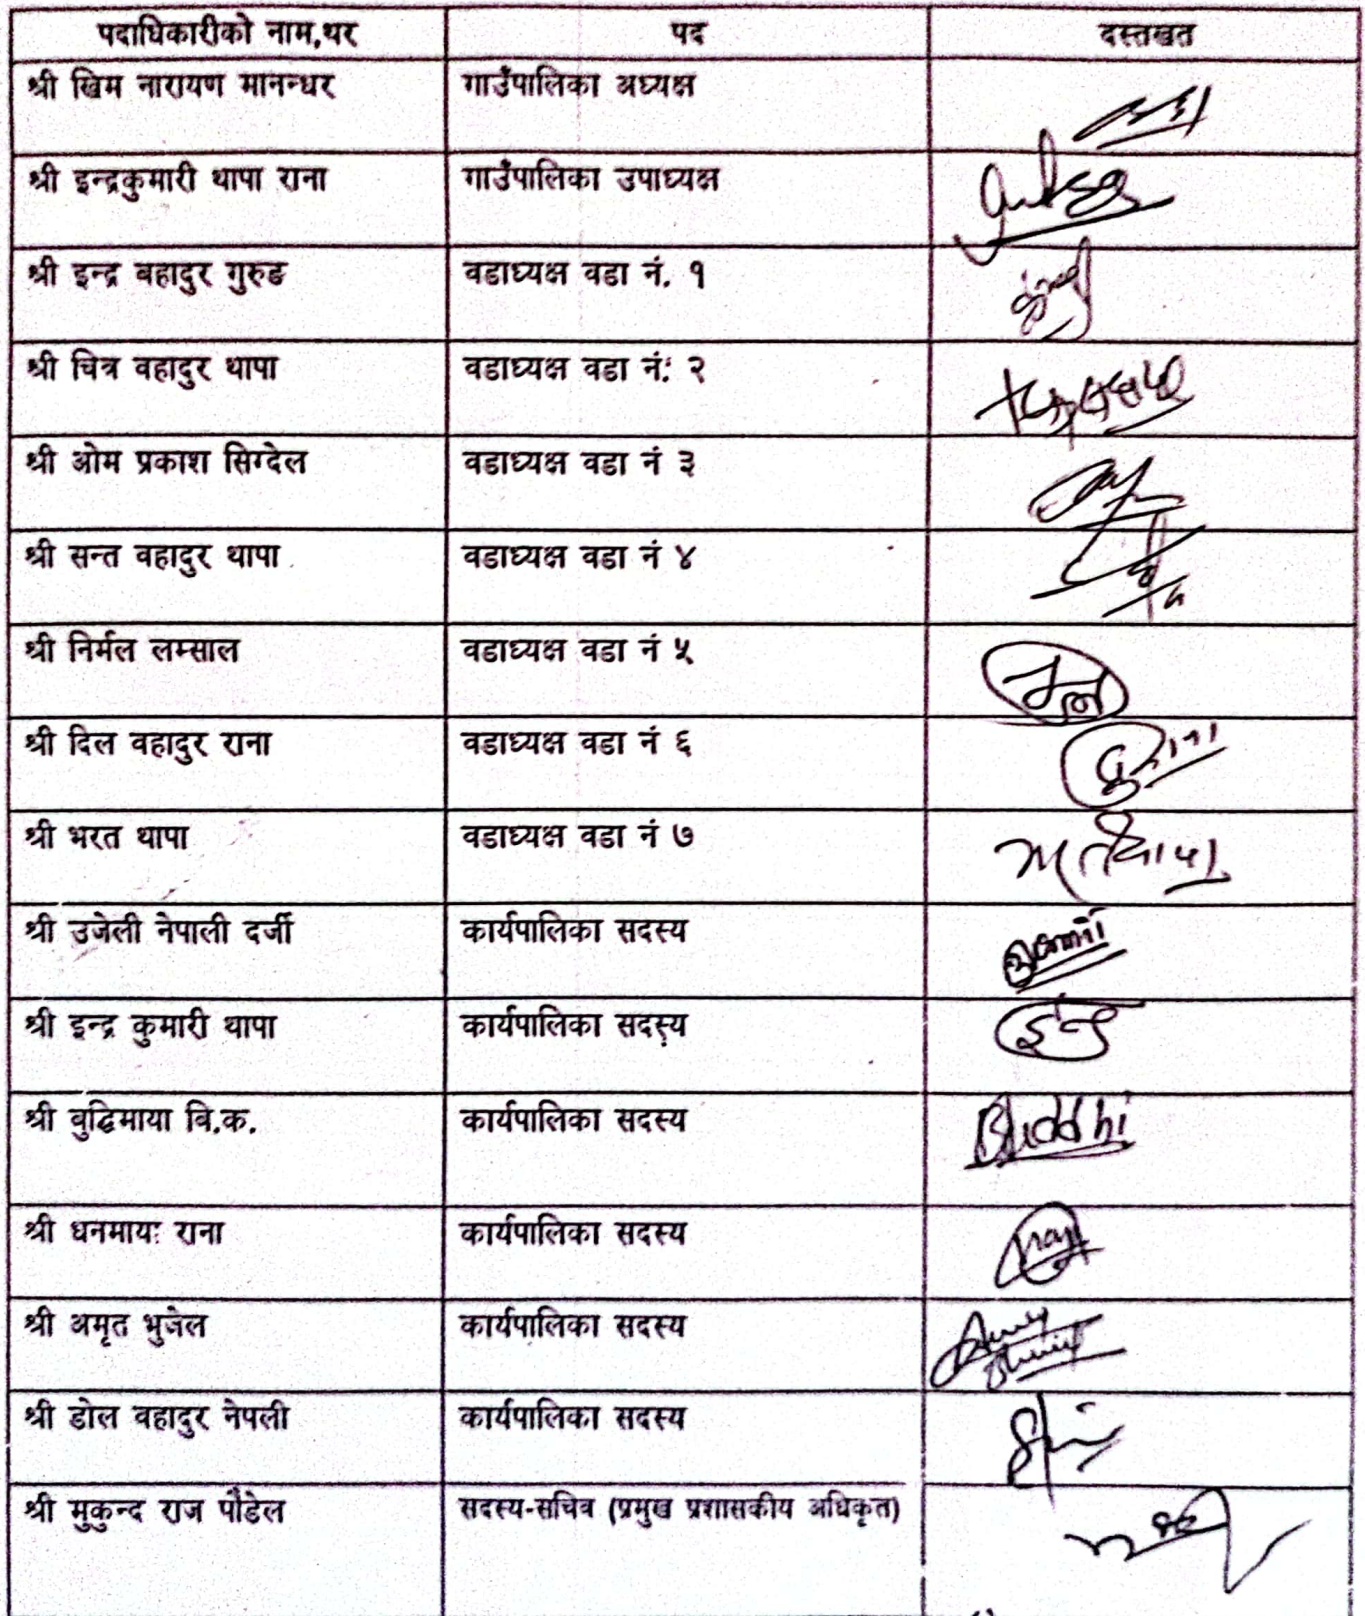 पदाधिकारीको नाम,थर पद दस्तखत
श्री खिम नारायण मानन्धर गाउँपालिका अध्यक्ष
श्री इन्द्रकुमारी थापा राना गाउँपालिका उपाध्यक्ष
श्री इन्द्र बहादुर गुरुङ वडाध्यक्ष वडा नं. १
श्री चित्र वहादुर थापा वडाध्यक्ष वडा नं. २
श्री ओम प्रकाश सिग्देल वडाध्यक्ष वडा नं ३
श्री सन्त वहादुर थापा वडाध्यक्ष वडा नं ४
श्री निर्मल लम्साल वडाध्यक्ष वडा नं ५
श्री दिल वहादुर राना वडाध्यक्ष वडा नं ६
श्री भरत थापा वडाध्यक्ष वडा नं ७
श्री उजेली नेपाली दर्जी कार्यपालिका सदस्य
श्री इन्द्र कुमारी थापा कार्यपालिका सदस्य
श्री वुद्धिमाया वि.क. कार्यपालिका सदस्य Buddhi
श्री धनमायः राना कार्यपालिका सदस्य
श्री अमृत भुजेल कार्यपालिका सदस्य
श्री डोल वहादुर नेपली कार्यपालिका सदस्य
श्री मुकुन्द राज पौडेल सदस्य-सचिव (प्रमुख प्रशासकीय अधिकृत)